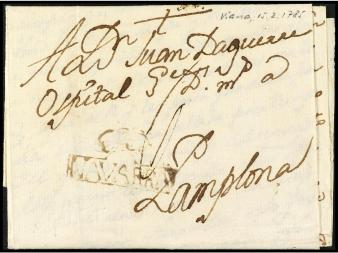 Viana, 15.2.1785
A Dn Juan Daguerre
Ospital G
a
NAVARRA
Pamplona